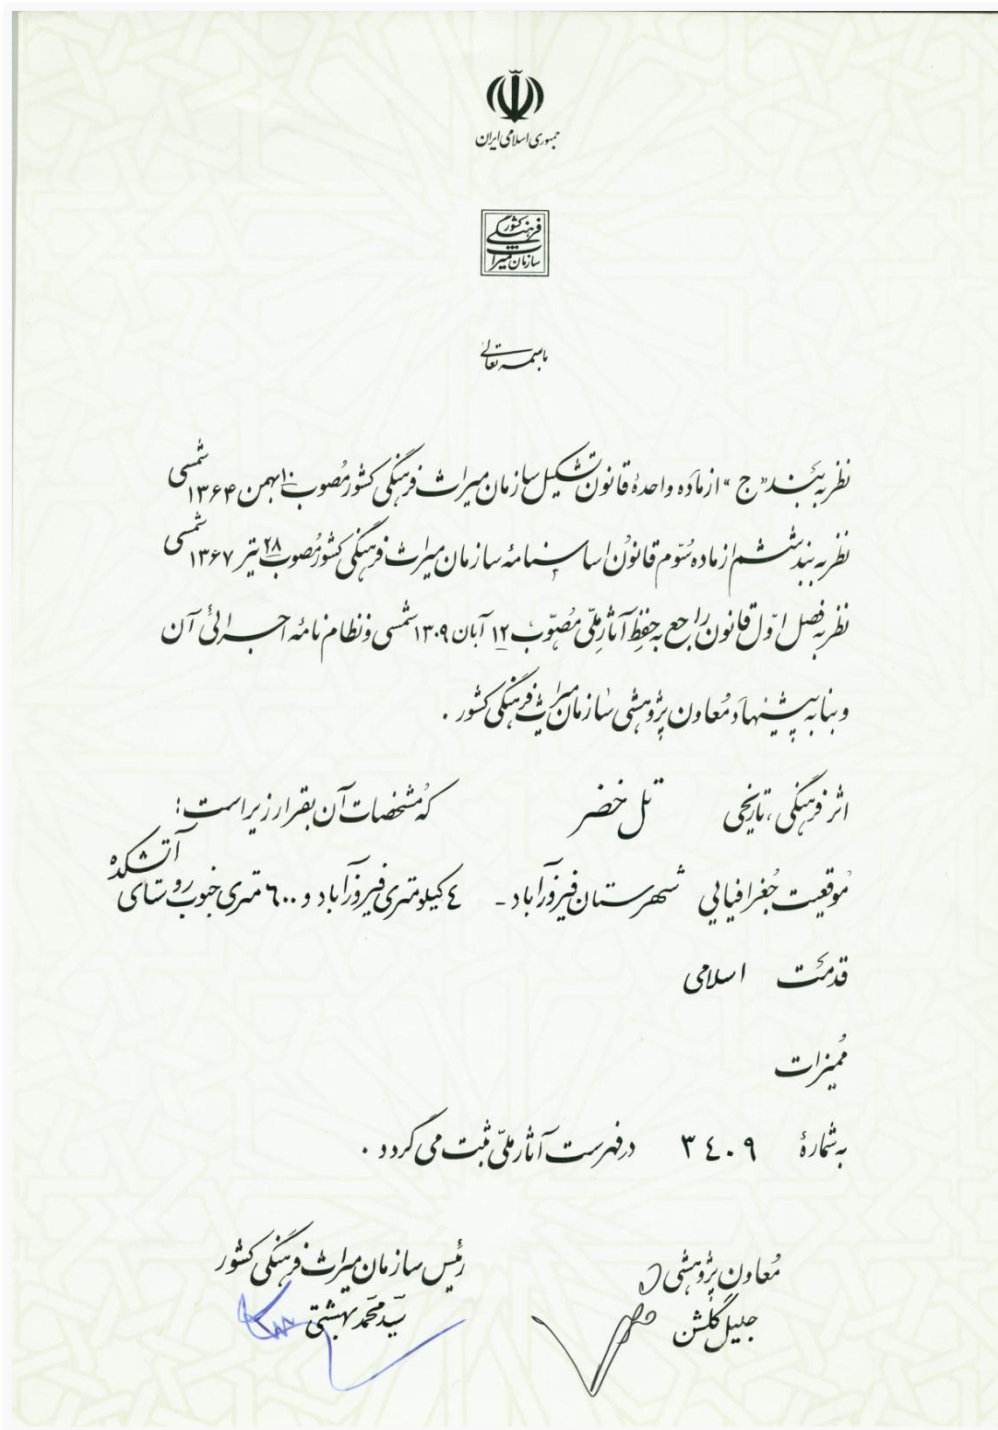 جمهوری اسلامی ایران
سازمان میراث فرهنگی کشور
باسمه تعالی
نظر به بند «ج» از ماده واحدهٔ قانون تشکیل سازمان میراث فرهنگی کشور مُصوب ۱۰ بهمن ۱۳۶۴ شمسی
نظر به بند ششم از ماده سّوم قانون اساسنامهٔ سازمان میراث فرهنگی کشور مُصوب ۲۸ تیر ۱۳۶۷ شمسی
نظر به فصل اوّل قانون راجع به حفظِ آثار ملّی مُصوّب ۱۲ آبان ۱۳۰۹ شمسی و نظام نامهٔ اجرائی آن
و بنا به پیشنهاد مُعاون پژوهشی سازمان میراث فرهنگی کشور .
اثر فرهنگی ، تاریخی تل خضر که مُشخصات آن بقرار زیر است :
موقعیت جُغرافیایی شهرستان فیروزآباد - ٤ کیلومتری فیروزآباد و ٦٠٠ متری جنوب روستای آتشکده
قدمت اسلامی
مُمیزات
به شمارهٔ ٣٤٠٩ در فهرست آثار ملّی ثبت می گردد .
مُعاون پژوهشی
جلیل گلشن
رئیس سازمان میراث فرهنگی کشور
سیّد محمّد بهشتی